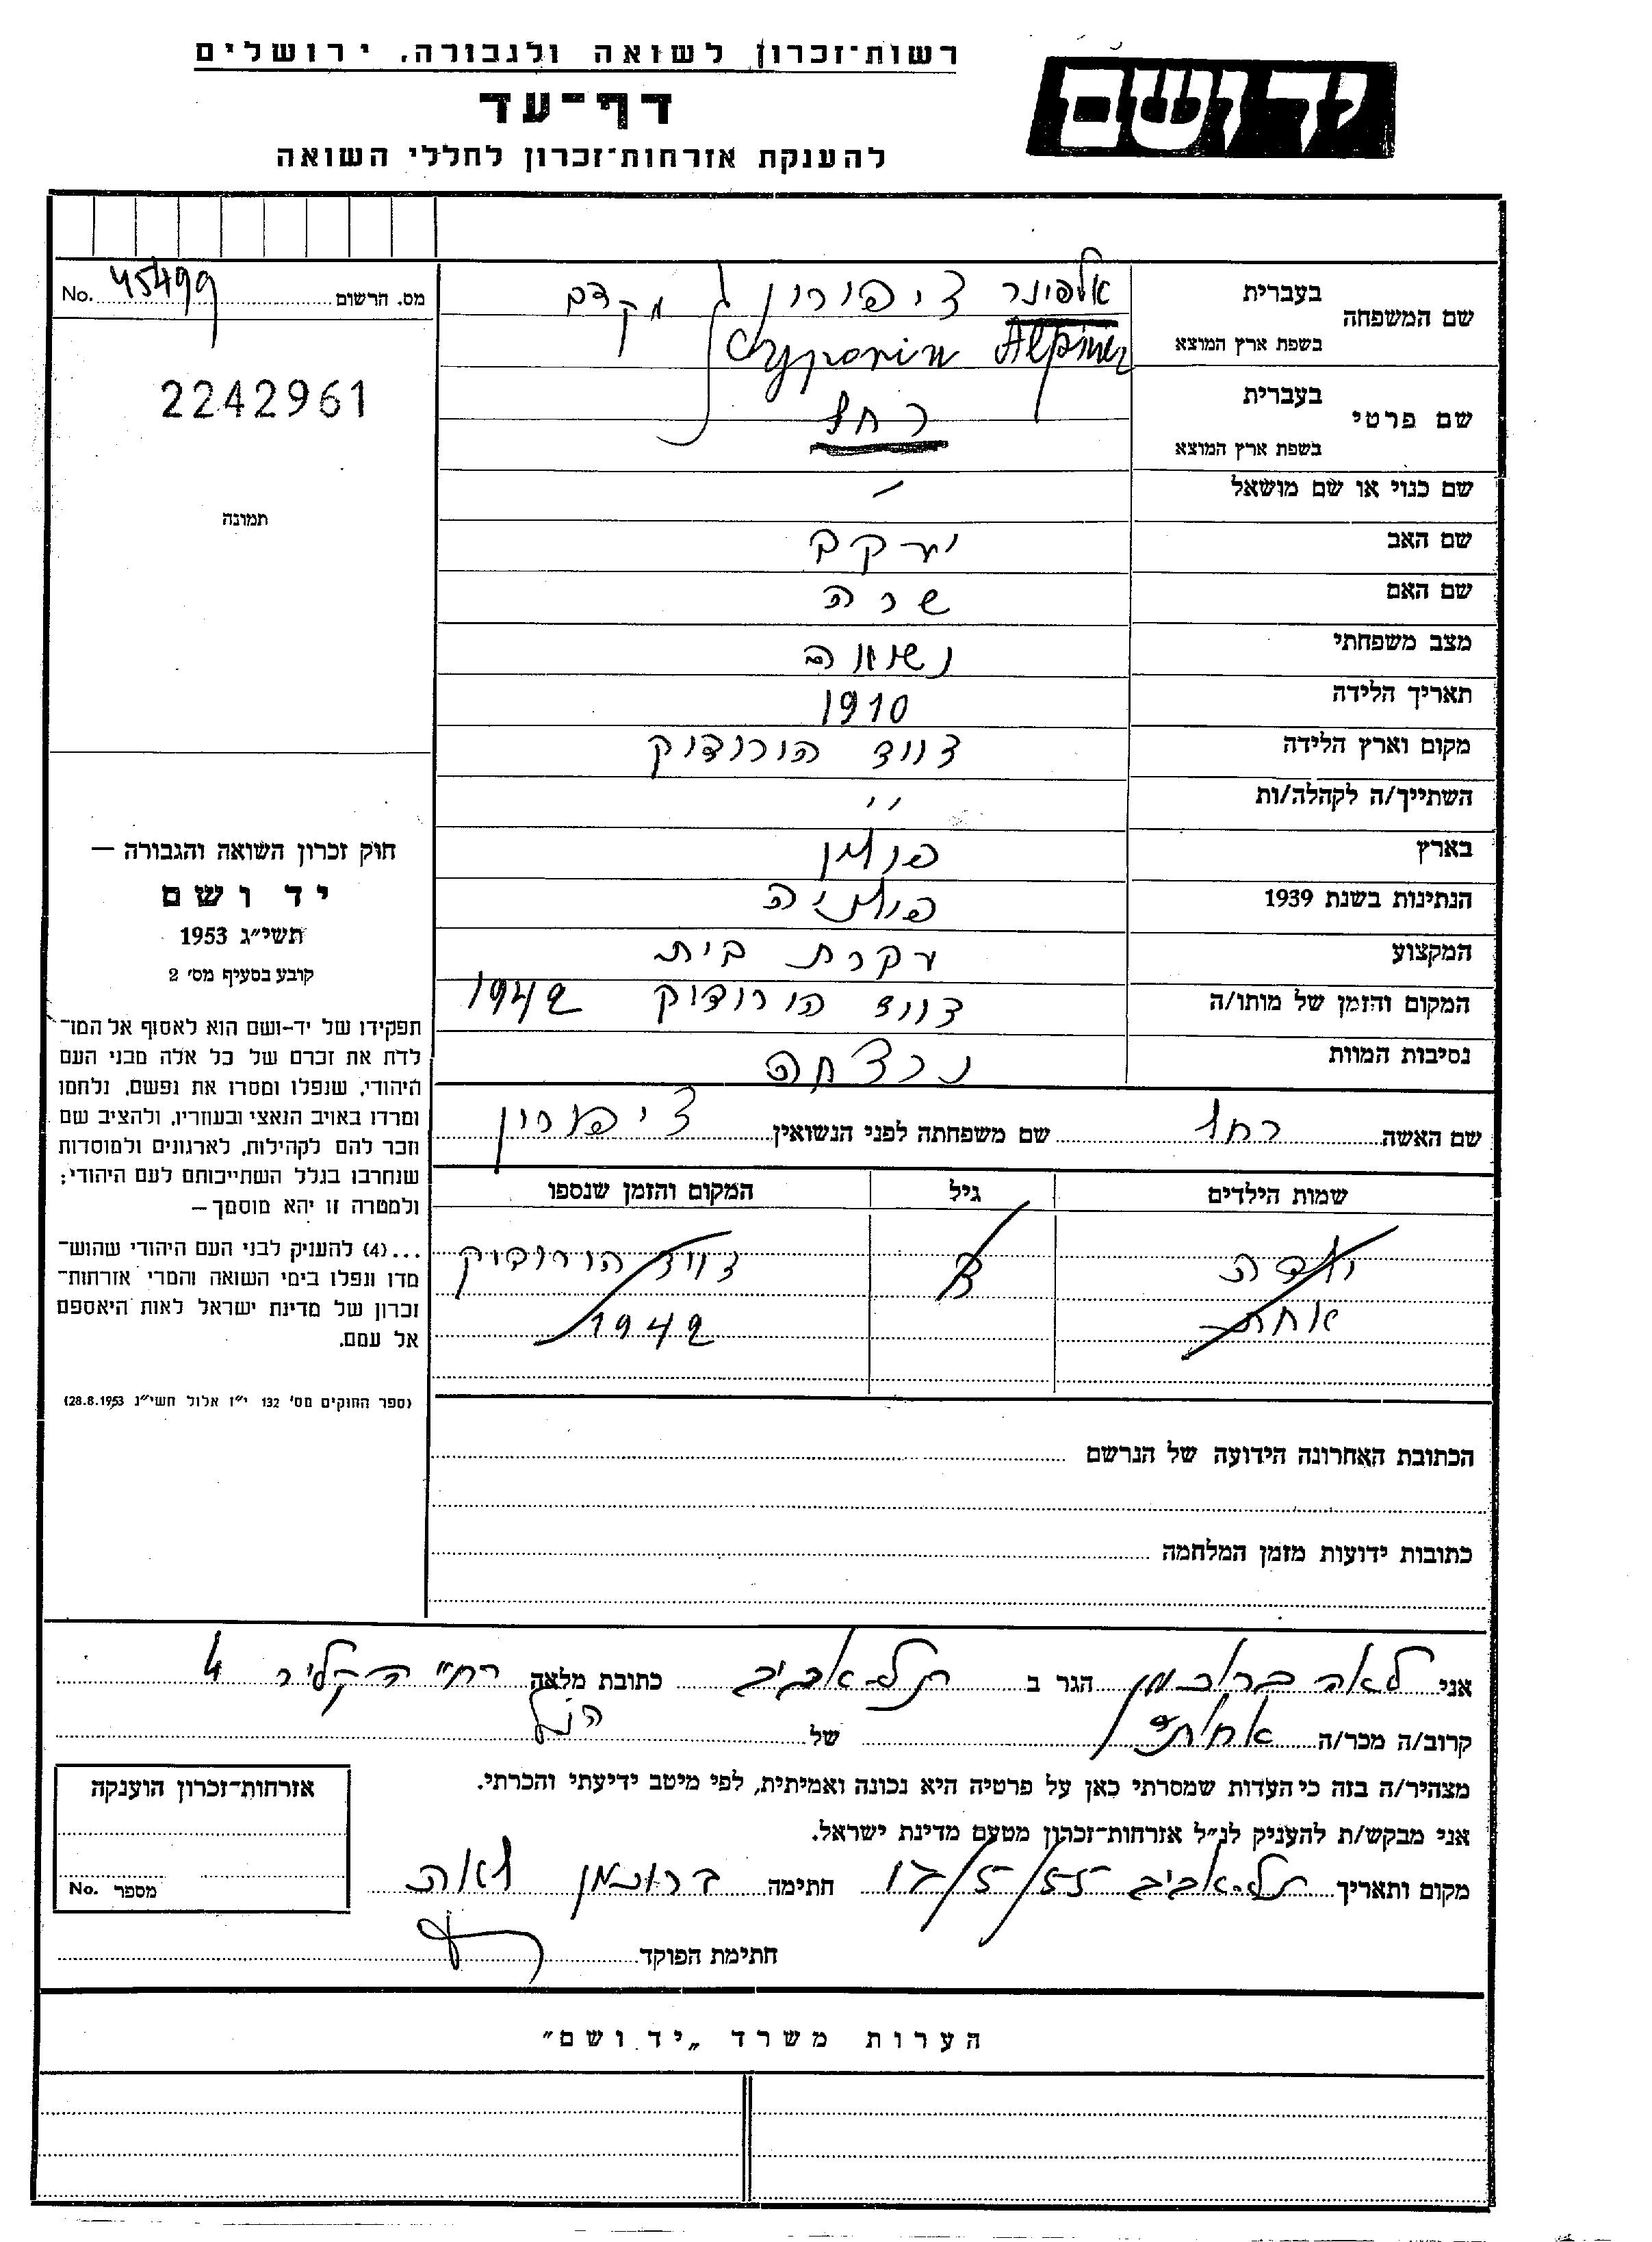 רשות־זכרון לשואה ולגבורה. ירושלים
ידושם
דף־עד
להענקת אזרחות־זכרון לחללי השואה
No. 45499 מס. הרשום
2242961
תמונה
שם המשפחה
בעברית אלפינר ציפורין מקדם
בשפת ארץ המוצא Alpiner Cyporin
שם פרטי
בעברית רחל
בשפת ארץ המוצא
שם כנוי או שם מושאל –
שם האב יעקב
שם האם שרה
מצב משפחתי נשואה
תאריך הלידה 1910
מקום וארץ הלידה דוויד הורודוק
השתייך/ה לקהלה/ות ״
בארץ פולין
הנתינות בשנת 1939 פולניה
המקצוע עקרת בית
המקום והזמן של מותו/ה דוויד הורודוק 1942
נסיבות המוות נרצחה
שם האשה רחל שם משפחתה לפני הנשואין ציפורין
שמות הילדים גיל המקום והזמן שנספו
ילדת 3 דוויד הורודוק
אחת 1942
חוק זכרון השואה והגבורה —
יד ושם
תשי״ג 1953
קובע בסעיף מס׳ 2
תפקידו של יד-ושם הוא לאסוף אל המו־
לדת את זכרם של כל אלה מבני העם
היהודי, שנפלו ומסרו את נפשם, נלחמו
ומרדו באויב הנאצי ובעוזריו, ולהציב שם
וזכר להם לקהילות, לארגונים ולמוסדות
שנחרבו בגלל השתייכותם לעם היהודי;
ולמטרה זו יהא מוסמך —
...(4) להעניק לבני העם היהודי שהוש־
מדו ונפלו בימי השואה והמרי אזרחות־
זכרון של מדינת ישראל לאות היאספם
אל עמם.
(ספר החוקים מס׳ 132 י״ז אלול תשי״ג 28.8.1953)
הכתובת האחרונה הידועה של הנרשם
כתובות ידועות מזמן המלחמה
אני לאה ברוכמן הגר ב תל-אביב כתובת מלאה רח׳ הקליר 4
קרוב/ה מכר/ה אחות של הנ״ל
מצהיר/ה בזה כי העדות שמסרתי כאן על פרטיה היא נכונה ואמיתית, לפי מיטב ידיעתי והכרתי.
אני מבקש/ת להעניק לנ״ל אזרחות־זכרון מטעם מדינת ישראל.
מקום ותאריך תל-אביב 12/5/55 חתימה ברוכמן לאה
חתימת הפוקד
אזרחות־זכרון הוענקה
No. מספר
הערות משרד „יד ושם״